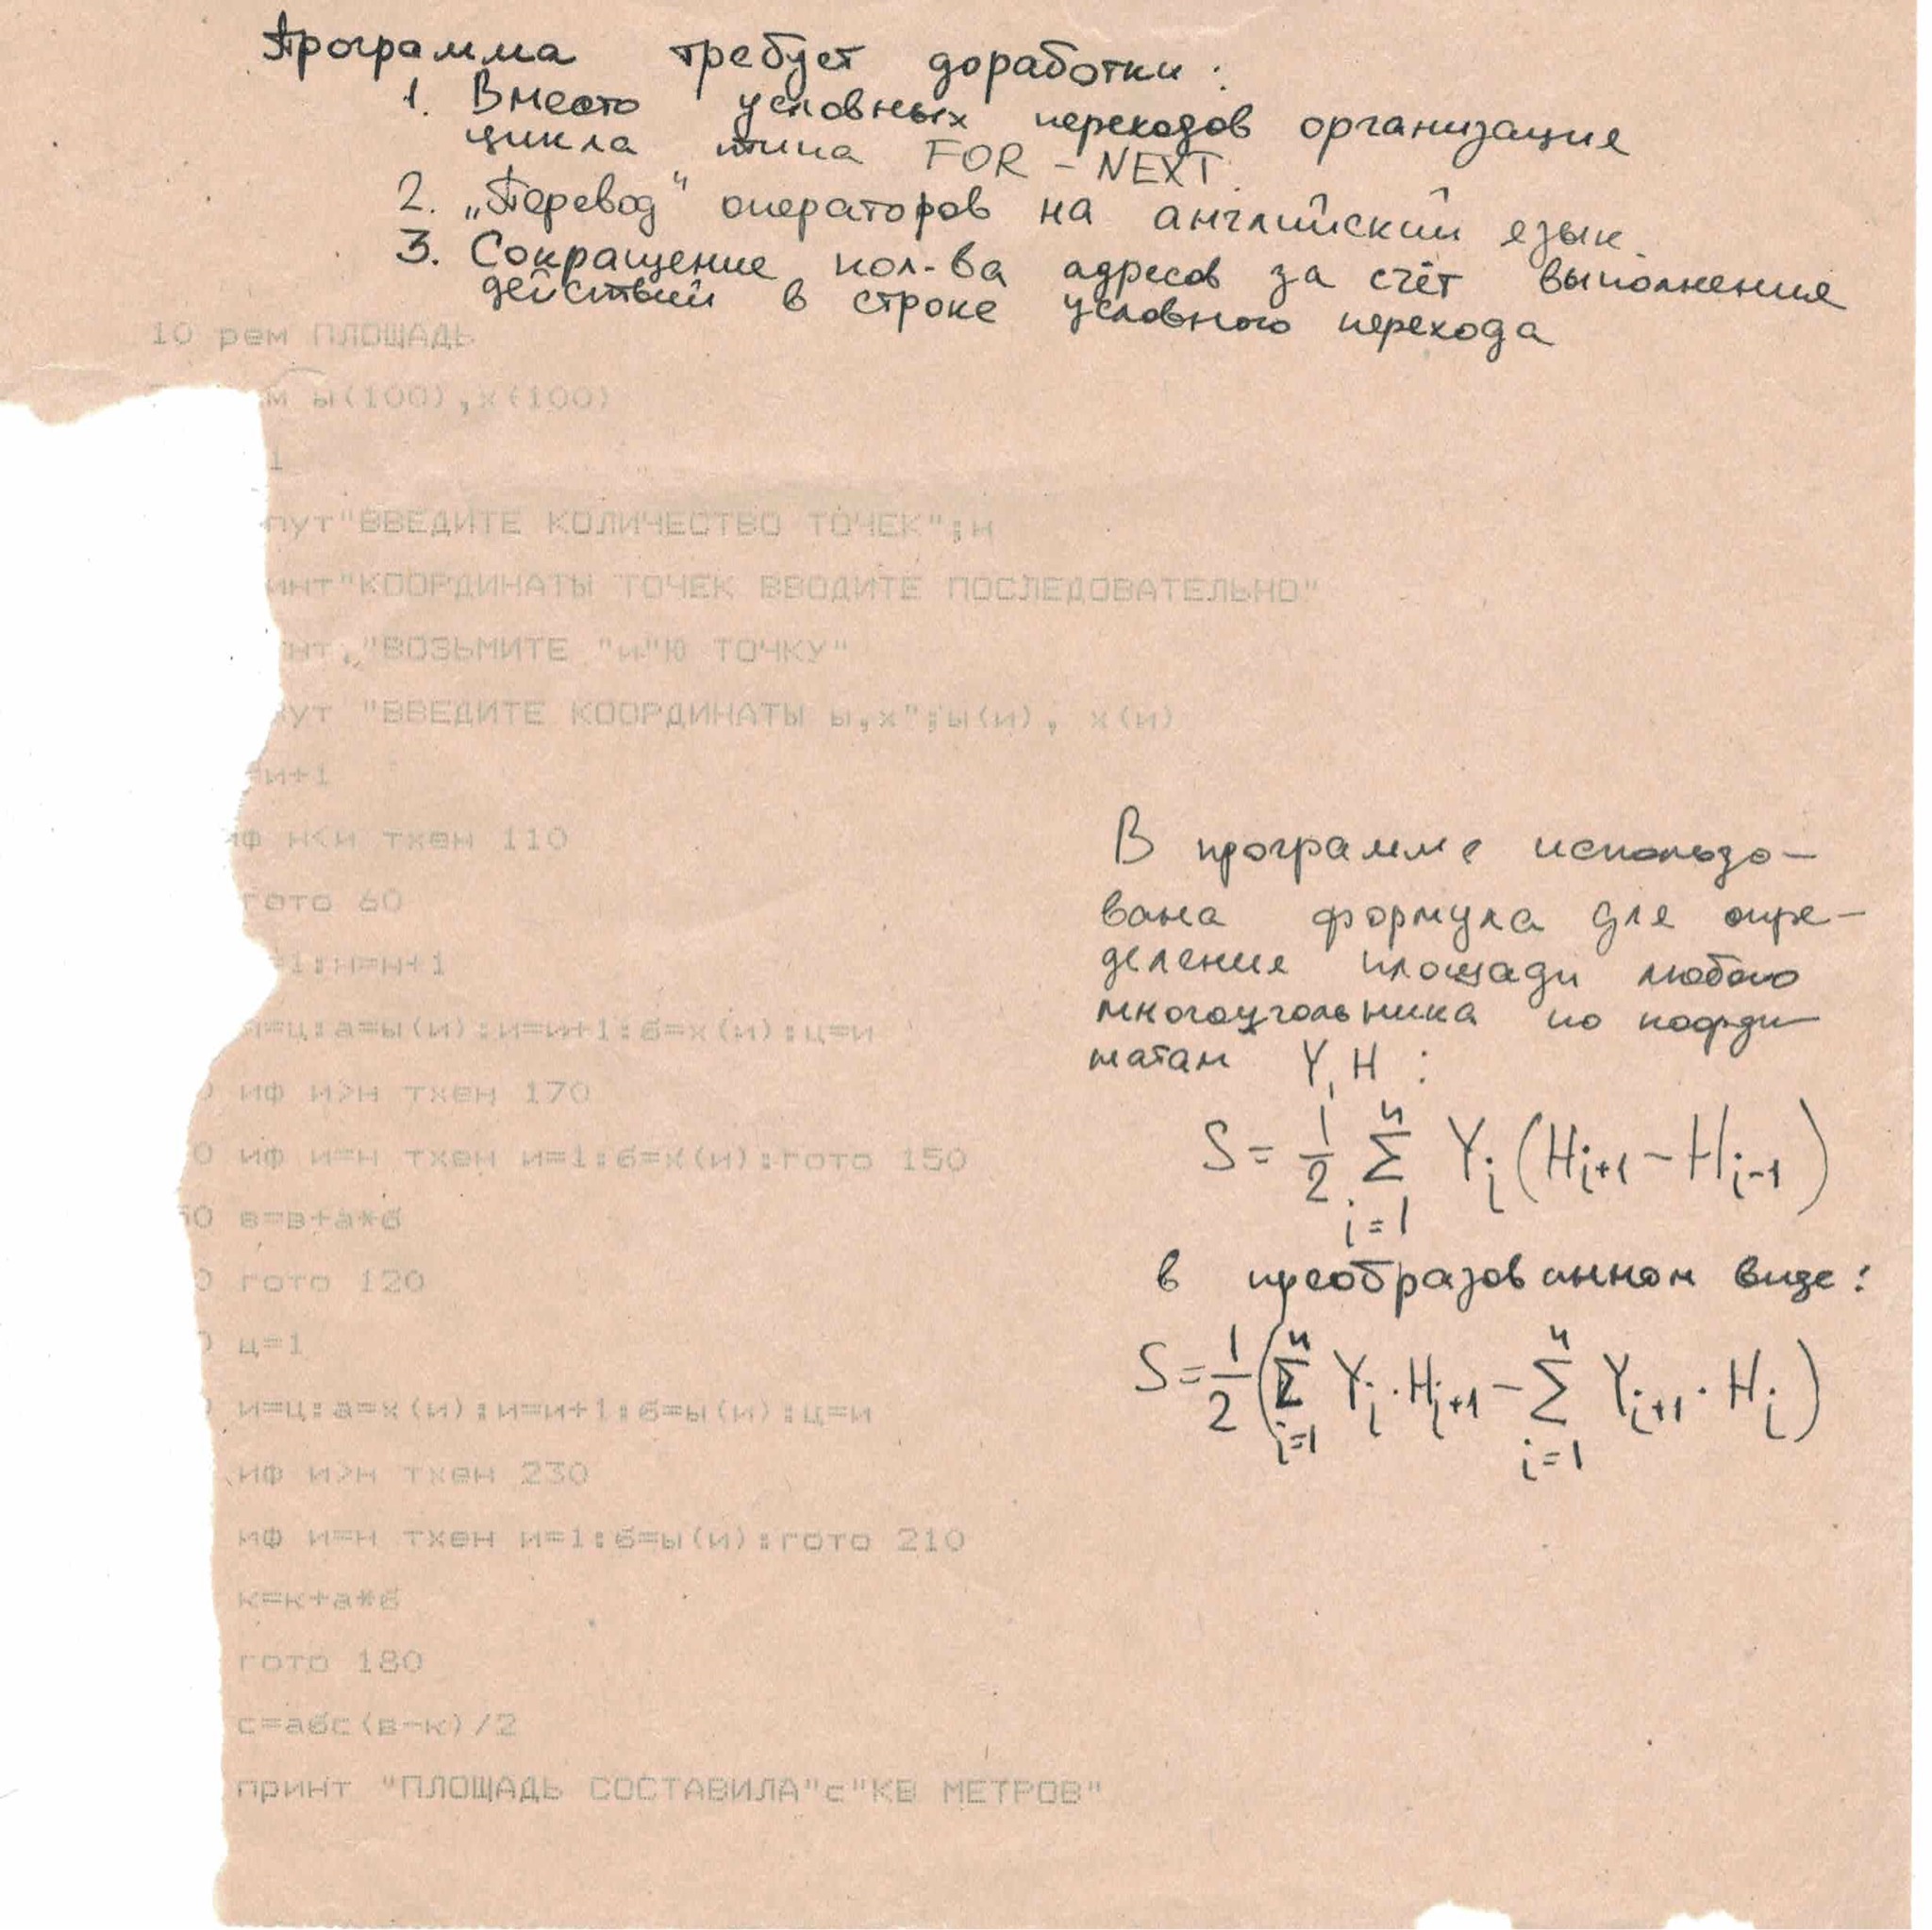 Программа требует доработки:
1. Вместо условных переходов организация
цикла типа FOR - NEXT.
2. „Перевод" операторов на английский язык.
3. Сокращение кол-ва адресов за счёт выполнения
действий в строке условного перехода
10 рем ПЛОЩАДЬ
м ы(100),х(100)
1
пут"ВВЕДИТЕ КОЛИЧЕСТВО ТОЧЕК";н
инт"КООРДИНАТЫ ТОЧЕК ВВОДИТЕ ПОСЛЕДОВАТЕЛЬНО"
нт,"ВОЗЬМИТЕ "и"Ю ТОЧКУ"
пут "ВВЕДИТЕ КООРДИНАТЫ ы,х";ы(и), х(и)
=и+1
иф н<и тхен 110
гото 60
=1:н=н+1
и=ц:а=ы(и):и=и+1:б=х(и):ц=и
0 иф и>н тхен 170
0 иф и=н тхен и=1:б=х(и):гото 150
50 в=в+а*б
0 гото 120
0 ц=1
0 и=ц:а=х(и):и=и+1:б=ы(и):ц=и
иф и>н тхен 230
иф и=н тхен и=1:б=ы(и):гото 210
к=к+а*б
гото 180
с=абс(в-к)/2
принт "ПЛОЩАДЬ СОСТАВИЛА"с"КВ МЕТРОВ"
В программе использо-
вана формула для опре-
деления площади любого
многоугольника по коорди-
натам Y, H :
S = 1/2 n∑i=1 Yi (Hi+1 - Hi-1)
в преобразованном виде:
S = 1/2 (n∑i=1 Yi · Hi+1 - n∑i=1 Yi+1 · Hi)